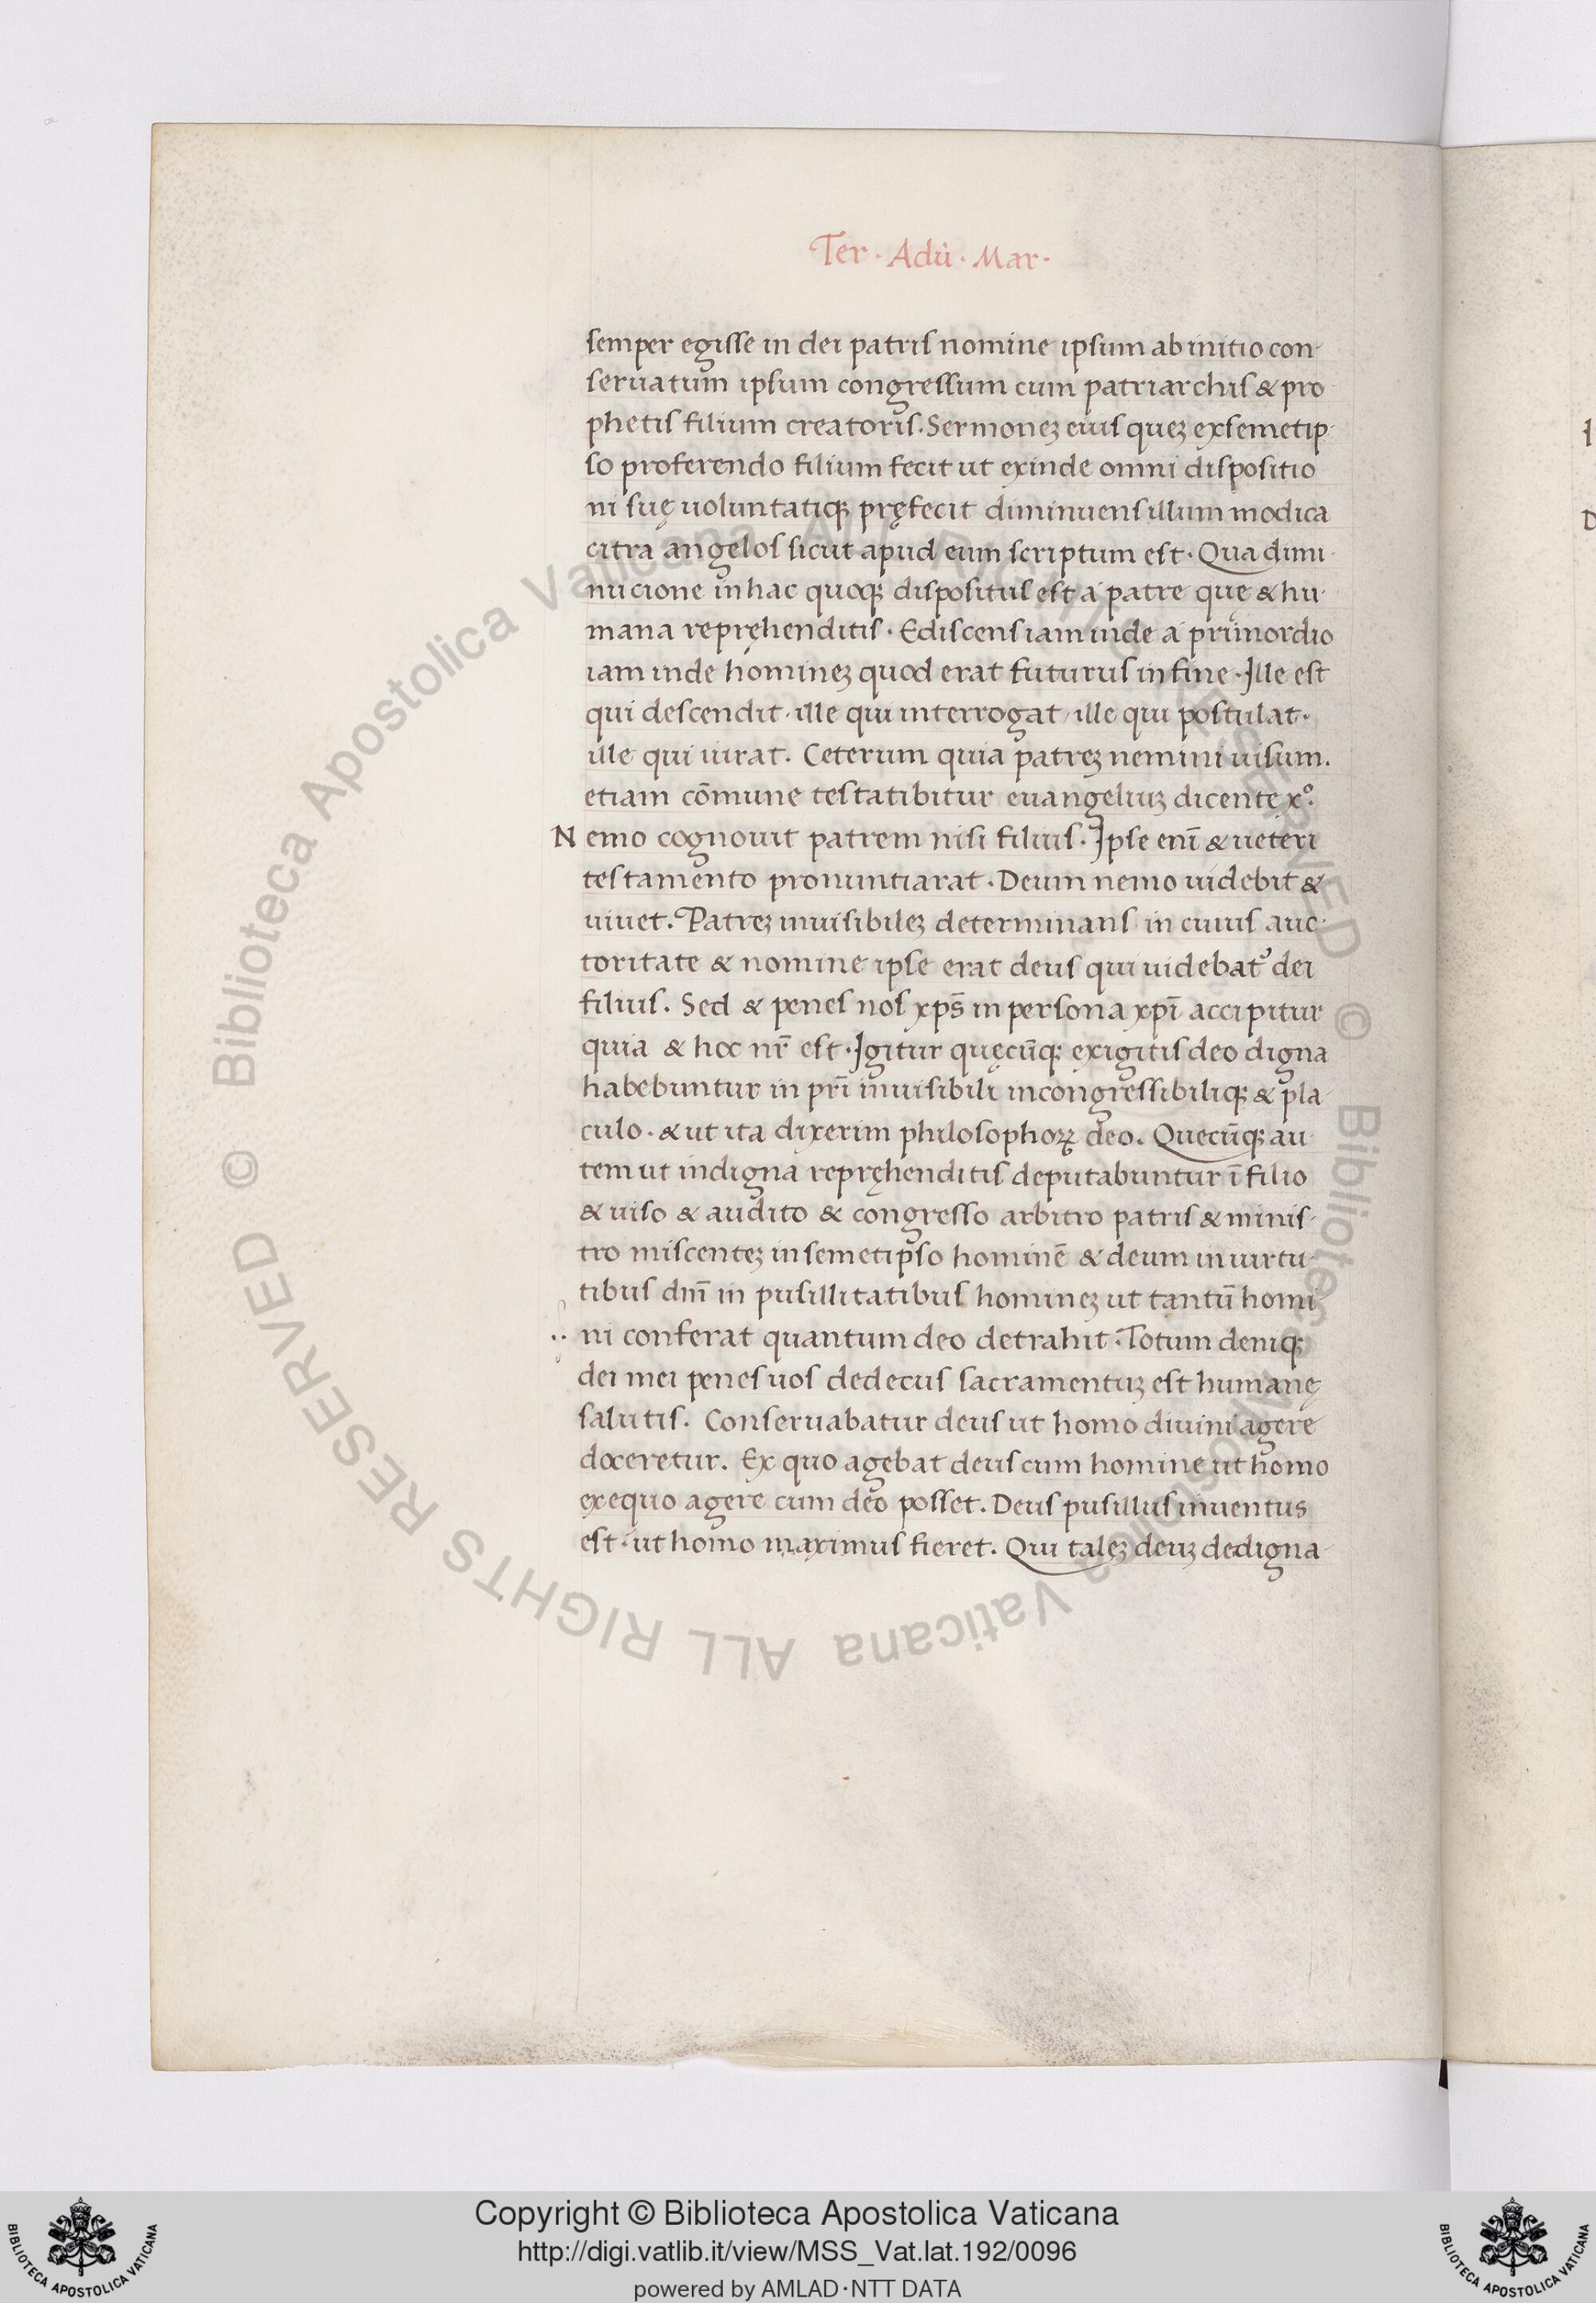 Ter · Adū · Mar ·
semper egisse in dei patris nomine ipsum ab initio con-
seruatum ipsum congressum cum patriarchis & pro-
phetis filium creatoris. Sermoneꝫ eius queꝫ ex semetip-
so proferendo filium fecit ut exinde omni dispositio
ni suę uoluntatiqꝫ pręfecit diminuens illum modica
citra angelos sicut apud eum scriptum est. Qua dimi-
nucione in hac quoqꝫ dispositus est a patre quę & hu-
mana repręhenditis. Ediscens iam inde a primordio
iam inde homineꝫ quod erat futurus in fine. Ille est
qui descendit. ille qui interrogat, ille qui postulat.
ille qui iurat. Ceterum quia patreꝫ nemini uisum.
etiam cōmune testatibitur euangeliuꝫ dicente xº.
Nemo cognouit patrem nisi filius. Ipse enī & ueteri
testamento pronuntiarat. Deum nemo uidebit &
uiuet. Patreꝫ inuisibileꝫ determinans in cuius auc-
toritate & nomine ipse erat deus qui uidebat᾿ dei
filius. Sed & penes nos xp̄s in persona xp̄i accipitur
quia & hoc nr̄ est. Igitur quęcūqꝫ exigitis deo digna
habebuntur in pr̄i inuisibili incongressibiliqꝫ & pla-
culo. & ut ita dixerim philosophoꝝ deo. Quecūqꝫ au-
tem ut indigna repręhenditis deputabuntur ī filio
& uiso & audito & congresso arbitro patris & minis-
tro miscenteꝫ in semetipso hominē & deum in uirtu-
tibus dm̄ in pusillitatibus homineꝫ ut tantū homi
ni conferat quantum deo detrahit. Totum deniqꝫ
dei mei penes uos dedecus sacramentuꝫ est humanę
salutis. Conseruabatur deus ut homo diuini agere
doceretur. Ex quo agebat deus cum homine ut homo
ex equo agere cum deo posset. Deus pusillus inuentus
est. ut homo maximus fieret. Qui taleꝫ deuꝫ dedigna-
© Biblioteca Apostolica Vaticana ALL RIGHTS RESERVED © Biblioteca Apostolica Vaticana ALL RIGHTS RESERVED
Copyright © Biblioteca Apostolica Vaticana
http://digi.vatlib.it/view/MSS_Vat.lat.192/0096
powered by AMLAD·NTT DATA
BIBLIOTECA APOSTOLICA VATICANA
BIBLIOTECA APOSTOLICA VATICANA